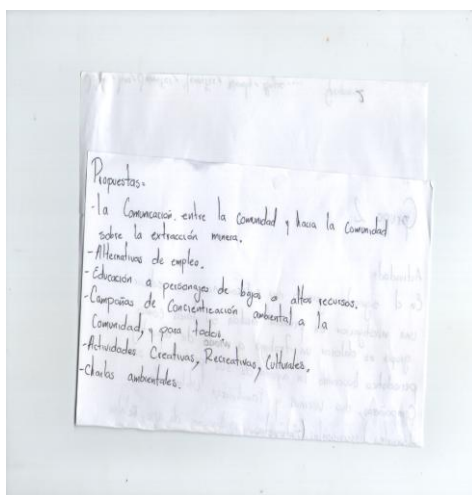 Propuestas:
-la Comuncación entre la Comunidad y hacia la Comunidad
sobre la extracción minera.
-Alternativas de empleo.
-Educación a personajes de bajos o altos recursos.
-Campañas de Concientización ambiental a la
Comunidad, y para todos
-Actividades: Creativas, Recreativas, Culturales.
-Charlas ambientales.